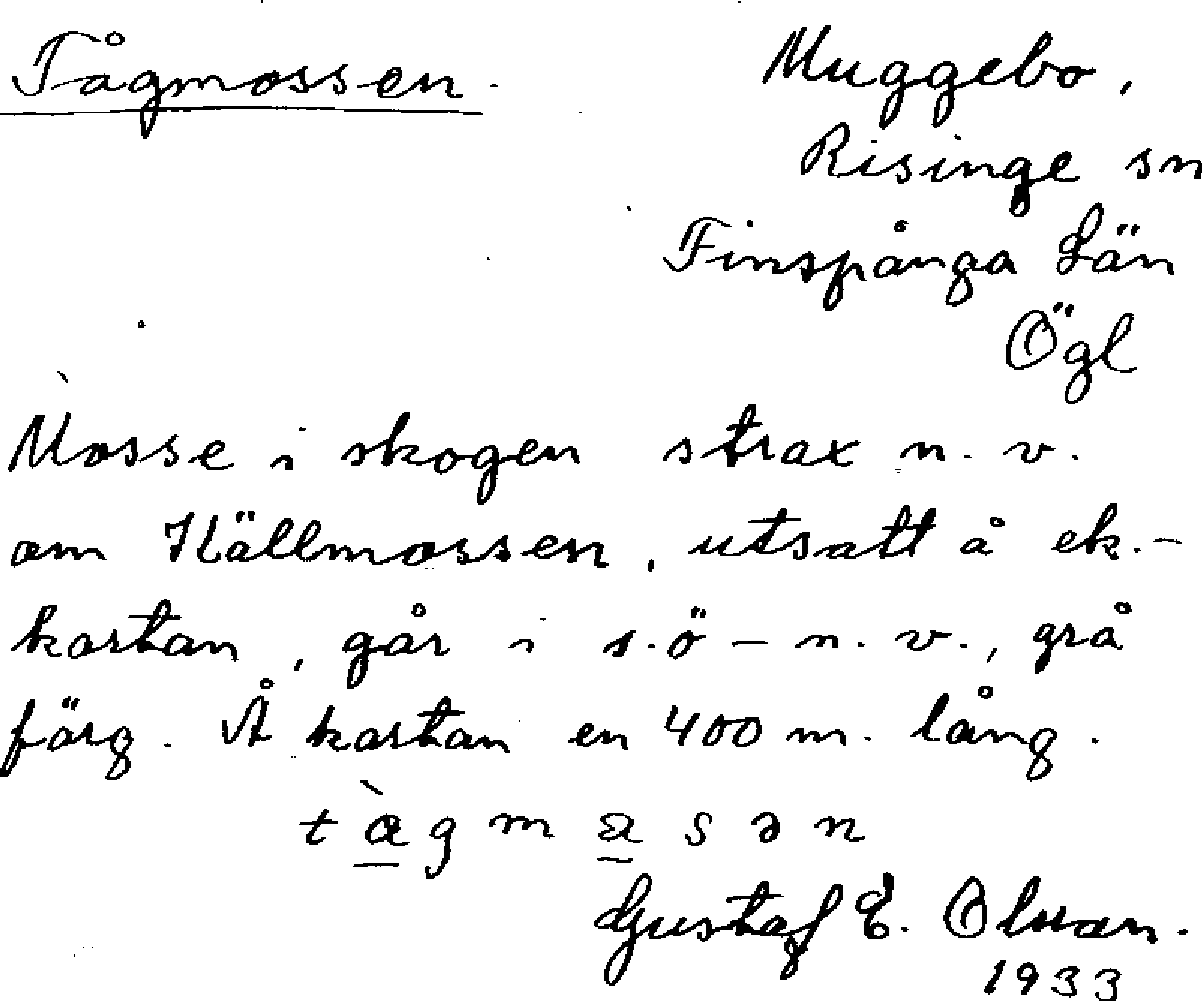 Tågmossen.
Muggebo,
Risinge sn
Finspånga Län
Ögl
Mosse i skogen strax n. v.
om Källmossen, utsatt å ek.-
kartan, går i s.ö – n. v., grå
färg. Å kartan en 400 m. lång.
Gustaf E. Olsson.
1933